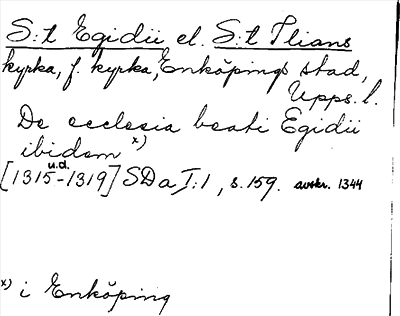 S:t Egidii el. S:t Ilians
kyrka, f. kyrka, Enköpings stad,
Upps. l.
De ecclesia beati Egidii
ibidem x)
u.d.
[1315-1319] SDa I:1, s. 159. avskr. 1344
x) i Enköping